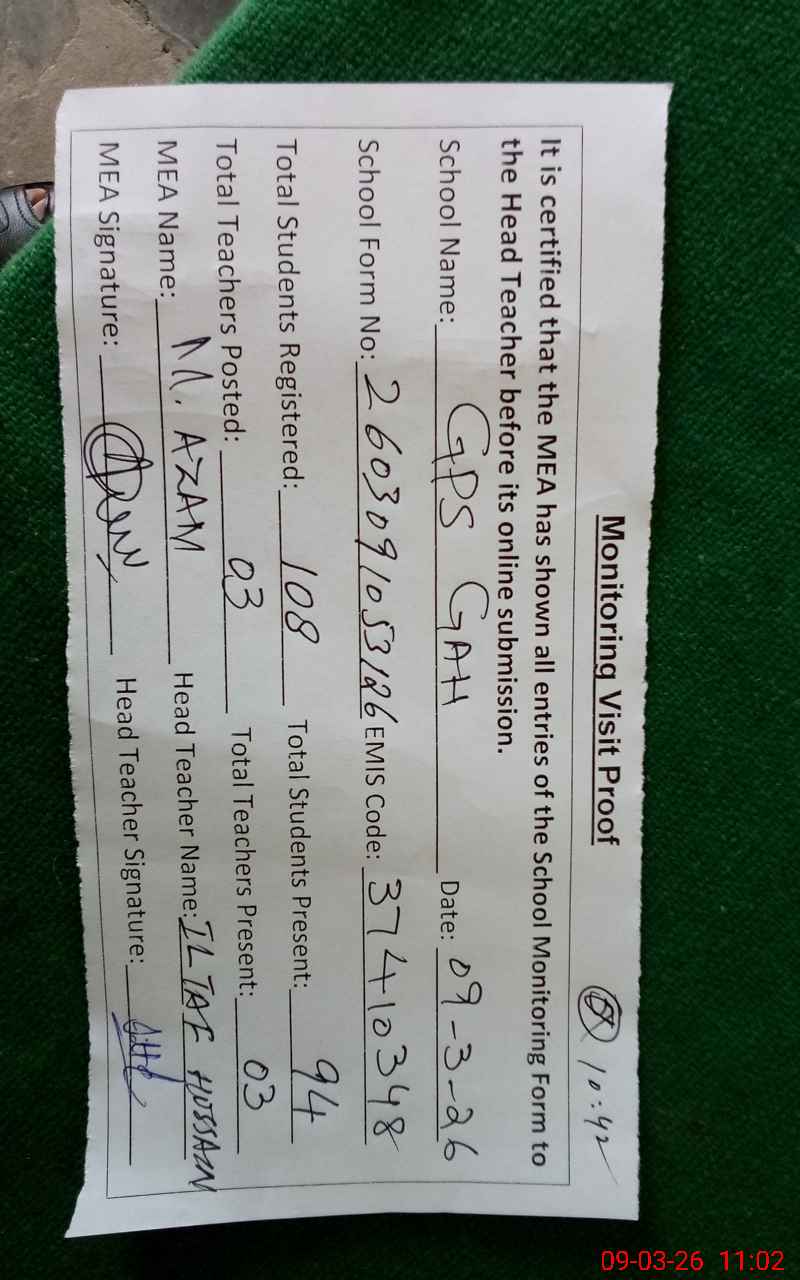 Monitoring Visit Proof
10:42
It is certified that the MEA has shown all entries of the School Monitoring Form to
the Head Teacher before its online submission.
School Name: GPS GAH Date: 09-3-26
School Form No: 2603091053126 EMIS Code: 37410348
Total Students Registered: 108 Total Students Present: 94
Total Teachers Posted: 03 Total Teachers Present: 03
MEA Name: M. AZAM Head Teacher Name: ILTAF HUSSAIN
MEA Signature: Head Teacher Signature:
09-03-26 11:02